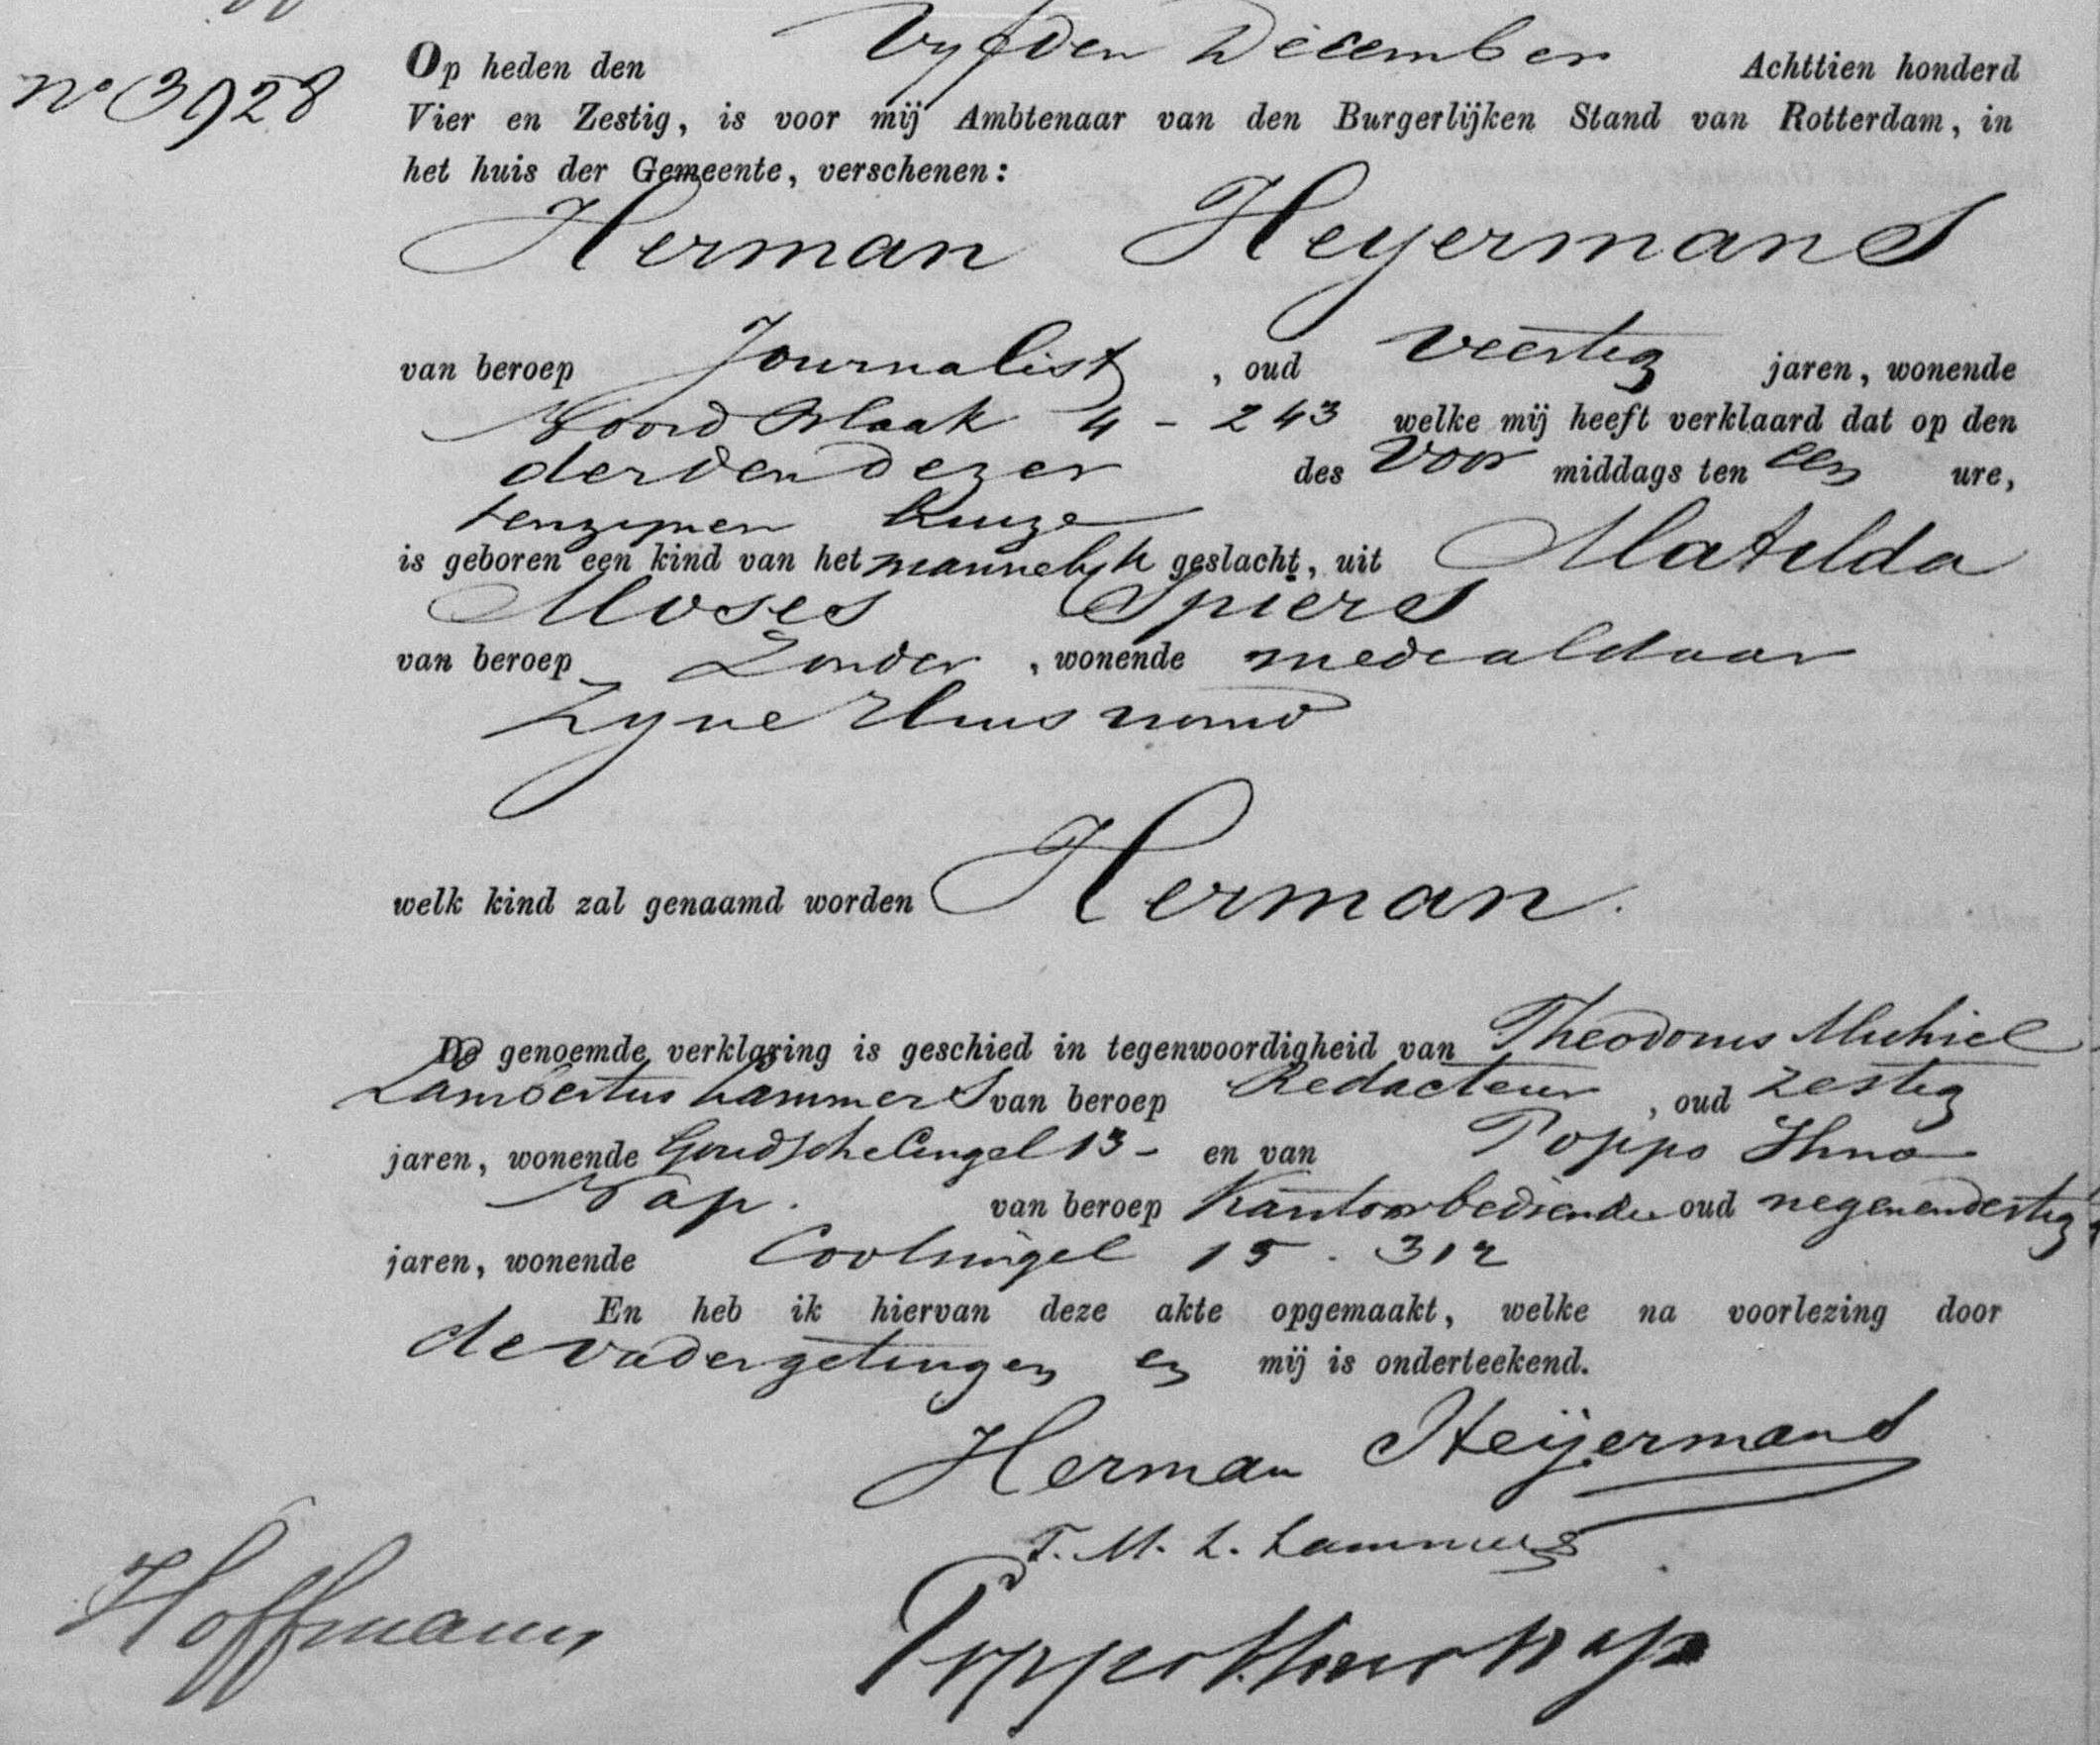 No 3928
Op heden den Vyfden December Achttien honderd
Vier en Zestig, is voor mij Ambtenaar van den Burgerlijken Stand van Rotterdam, in
het huis der Gemeente, verschenen:
Herman Heyermans
van beroep Journalist, oud Veertig jaren, wonende
Noord Blaak 4 - 243 welke mij heeft verklaard dat op den
derden dezer des Voor middags ten een ure,
tenzynen huize
is geboren een kind van het mannelyk geslacht, uit Matilda
Moses Spiers
van beroep Zonder, wonende mede aldaar
Zyne Huisvrouw
welk kind zal genaamd worden Herman.
De genoemde verklaring is geschied in tegenwoordigheid van Theodorus Michiel
Lambertus Lammers van beroep Redacteur, oud zestig
jaren, wonende Goudschesingel 13 - en van Poppo
Nap. van beroep Kantoorbediende oud negenendertig
jaren, wonende Coolsingel 15 - 312
En heb ik hiervan deze akte opgemaakt, welke na voorlezing door
de vader getuigen en mij is onderteekend.
Herman Heijermans
T. M. L. Lammers
Hoffmann